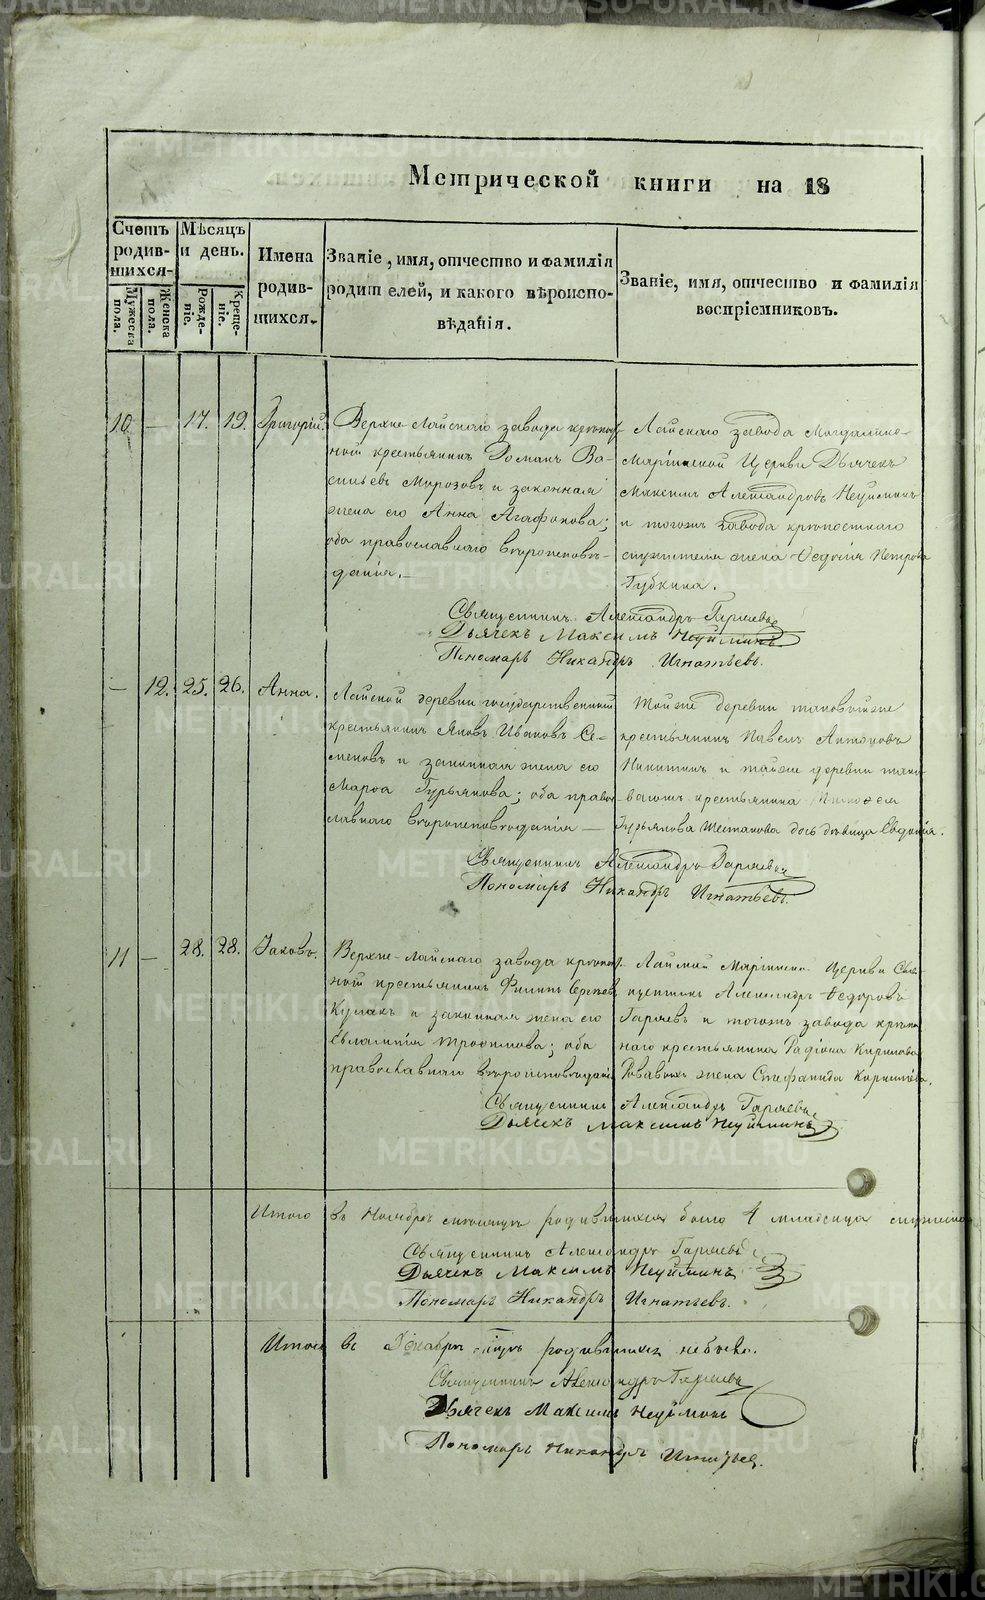 Метрической книги на 18
Счетъ родившихся.
Мѣсяцъ и день.
Имена родившихся.
Званіе, имя, отчество и фамилія родителей, и какого вѣроисповѣданія.
Званіе, имя, отчество и фамилія воспріемниковъ.
Мужеска пола.
Женска пола.
Рожденіе.
Крещеніе.
10 — 17. 19. Григорій.
Верхне-Лайскаго завода крѣпост-
ной крестьянинъ Романъ Ва-
сильевъ Морозовъ и законная
жена его Анна Агафонова;
оба православнаго вѣроисповѣ-
данія.—
Лайскаго завода Магдалино-
Маріинской Церкви Дьячекъ
Максимъ Александровъ Неуйминъ
и тогожъ завода крѣпостнаго
служителя жена Федосія Петрова
Губкина.
Священникъ Александръ Гаряевъ
Дьячекъ Максимъ Неуйминъ
Пономарь Никандръ Игнатьевъ.
— 12. 25. 26. Анна.
Лайской деревни государственный
крестьянинъ Яковъ Ивановъ Се-
меновъ и законная жена его
Марѳа Гурьянова; оба правос-
лавнаго вѣроисповѣданія —
Тойже деревни таковыйже
крестьянинъ Павелъ Антоновъ
Никитинъ и тойже деревни тако-
вагожъ крестьянина
Гурьянова Шестакова дочь дѣвица Евдокія.
Священникъ Александръ Гаряевъ
Пономарь Никандръ Игнатьевъ.
11 — 28. 28. Іаковъ.
Верхне-Лайскаго завода крѣпост-
ной крестьянинъ Филипъ Сергѣевъ
Кулакъ и законная жена его
Евлампія Трофимова; оба
православнаго вѣроисповѣданія
Лайской Маріинской Церкви Свя-
щенникъ Александръ Федоровъ
Гаряевъ и тогожъ завода крѣпост-
наго крестьянина Радіона Кирилова
жена Стефанида Корнилова.
Священникъ Александръ Гаряевъ
Дьячекъ Максимъ Неуйминъ
Итого въ Ноябрѣ мѣсяцѣ родившихся было 4 младенца
Священникъ Александръ Гаряевъ
Дьячекъ Максимъ Неуйминъ
Пономарь Никандръ Игнатьевъ.
Итого въ Декабрѣ родившихся небыло.
Священникъ Александръ Гаряевъ
Дьячекъ Максимъ Неуйминъ
Пономарь Никандръ Игнатьевъ.
METRIKI.GASO-URAL.RU